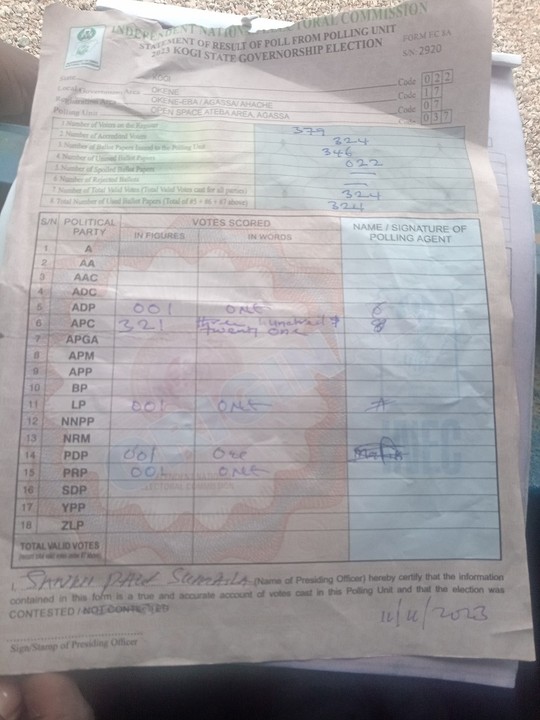 INDEPENDENT NATIONAL ELECTORAL COMMISSION
STATEMENT OF RESULT OF POLL FROM POLLING UNIT
FORM EC 8A
2023 KOGI STATE GOVERNORSHIP ELECTION
S/N: 2920
State KOGI Code 022
Local Government Area OKENE Code 17
Registration Area OKENE-EBA / AGASSA / AHACHE Code 07
Polling Unit OPEN SPACE ATEBA AREA, AGASSA Code 037
1. Number of Voters on the Register 379
2. Number of Accredited Voters 324
3. Number of Ballot Papers Issued to the Polling Unit 346
4. Number of Unused Ballot Papers 022
5. Number of Spoiled Ballot Papers
6. Number of Rejected Ballots
7. Number of Total Valid Votes (Total Valid Votes cast for all parties) 324
8. Total Number of Used Ballot Papers (Total of #5 + #6 + #7 above) 324
S/N POLITICAL PARTY VOTES SCORED NAME / SIGNATURE OF POLLING AGENT
IN FIGURES IN WORDS
1 A
2 AA
3 AAC
4 ADC
5 ADP 001 ONE
6 APC 321 three hundred & twenty one
7 APGA
8 APM
9 APP
10 BP
11 LP 001 ONE
12 NNPP
13 NRM
14 PDP 001 One
15 PRP 001 ONE
16 SDP
17 YPP
18 ZLP
TOTAL VALID VOTES
I, SUMAILA (Name of Presiding Officer) hereby certify that the information
contained in this form is a true and accurate account of votes cast in this Polling Unit and that the election was
CONTESTED / NOT CONTESTED
11/11/2023
Sign/Stamp of Presiding Officer